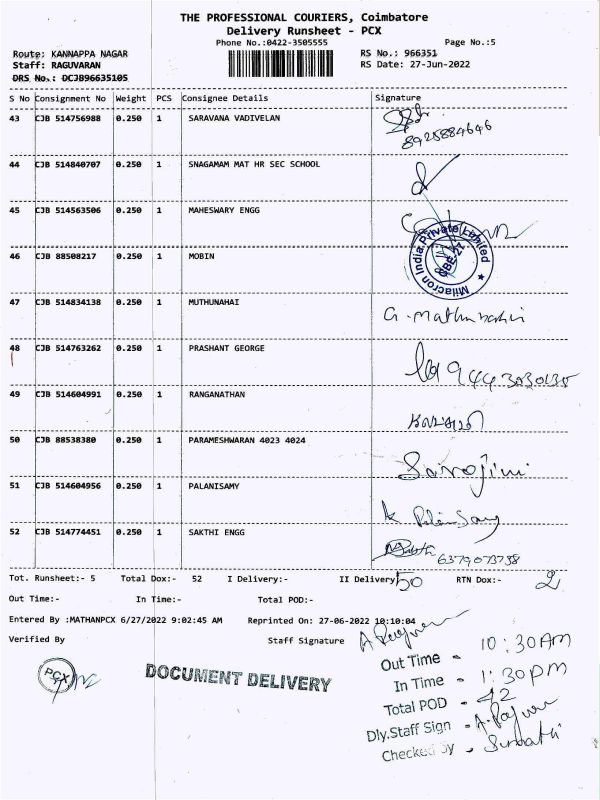 THE PROFESSIONAL COURIERS, Coimbatore
Delivery Runsheet - PCX
Phone No.:0422-3505555
Page No.:5
Route: KANNAPPA NAGAR
RS No.: 966351
Staff: RAGUVARAN
RS Date: 27-Jun-2022
DRS No.: DCJB96635105
S No Consignment No Weight PCS Consignee Details Signature
43 CJB 514756988 0.250 1 SARAVANA VADIVELAN
8925884646
44 CJB 514840707 0.250 1 SNAGAMAM MAT HR SEC SCHOOL
45 CJB 514563506 0.250 1 MAHESWARY ENGG
46 CJB 88508217 0.250 1 MOBIN
Milacron India Private Limited
CBE-27
47 CJB 514834138 0.250 1 MUTHUNAHAI
48 CJB 514763262 0.250 1 PRASHANT GEORGE
49 CJB 514604991 0.250 1 RANGANATHAN
50 CJB 88538380 0.250 1 PARAMESHWARAN 4023 4024
Sarojini
51 CJB 514604956 0.250 1 PALANISAMY
52 CJB 514774451 0.250 1 SAKTHI ENGG
Tot. Runsheet:- 5 Total Dox:- 52 I Delivery:- II Delivery 50 RTN Dox:- 2
Out Time:- In Time:- Total POD:-
Entered By :MATHANPCX 6/27/2022 9:02:45 AM Reprinted On: 27-06-2022 10:10:04
Verified By Staff Signature
PCX
DOCUMENT DELIVERY
Out Time - 10:30AM
In Time - 1:30PM
Total POD - 42
Dly.Staff Sign -
Checked By -